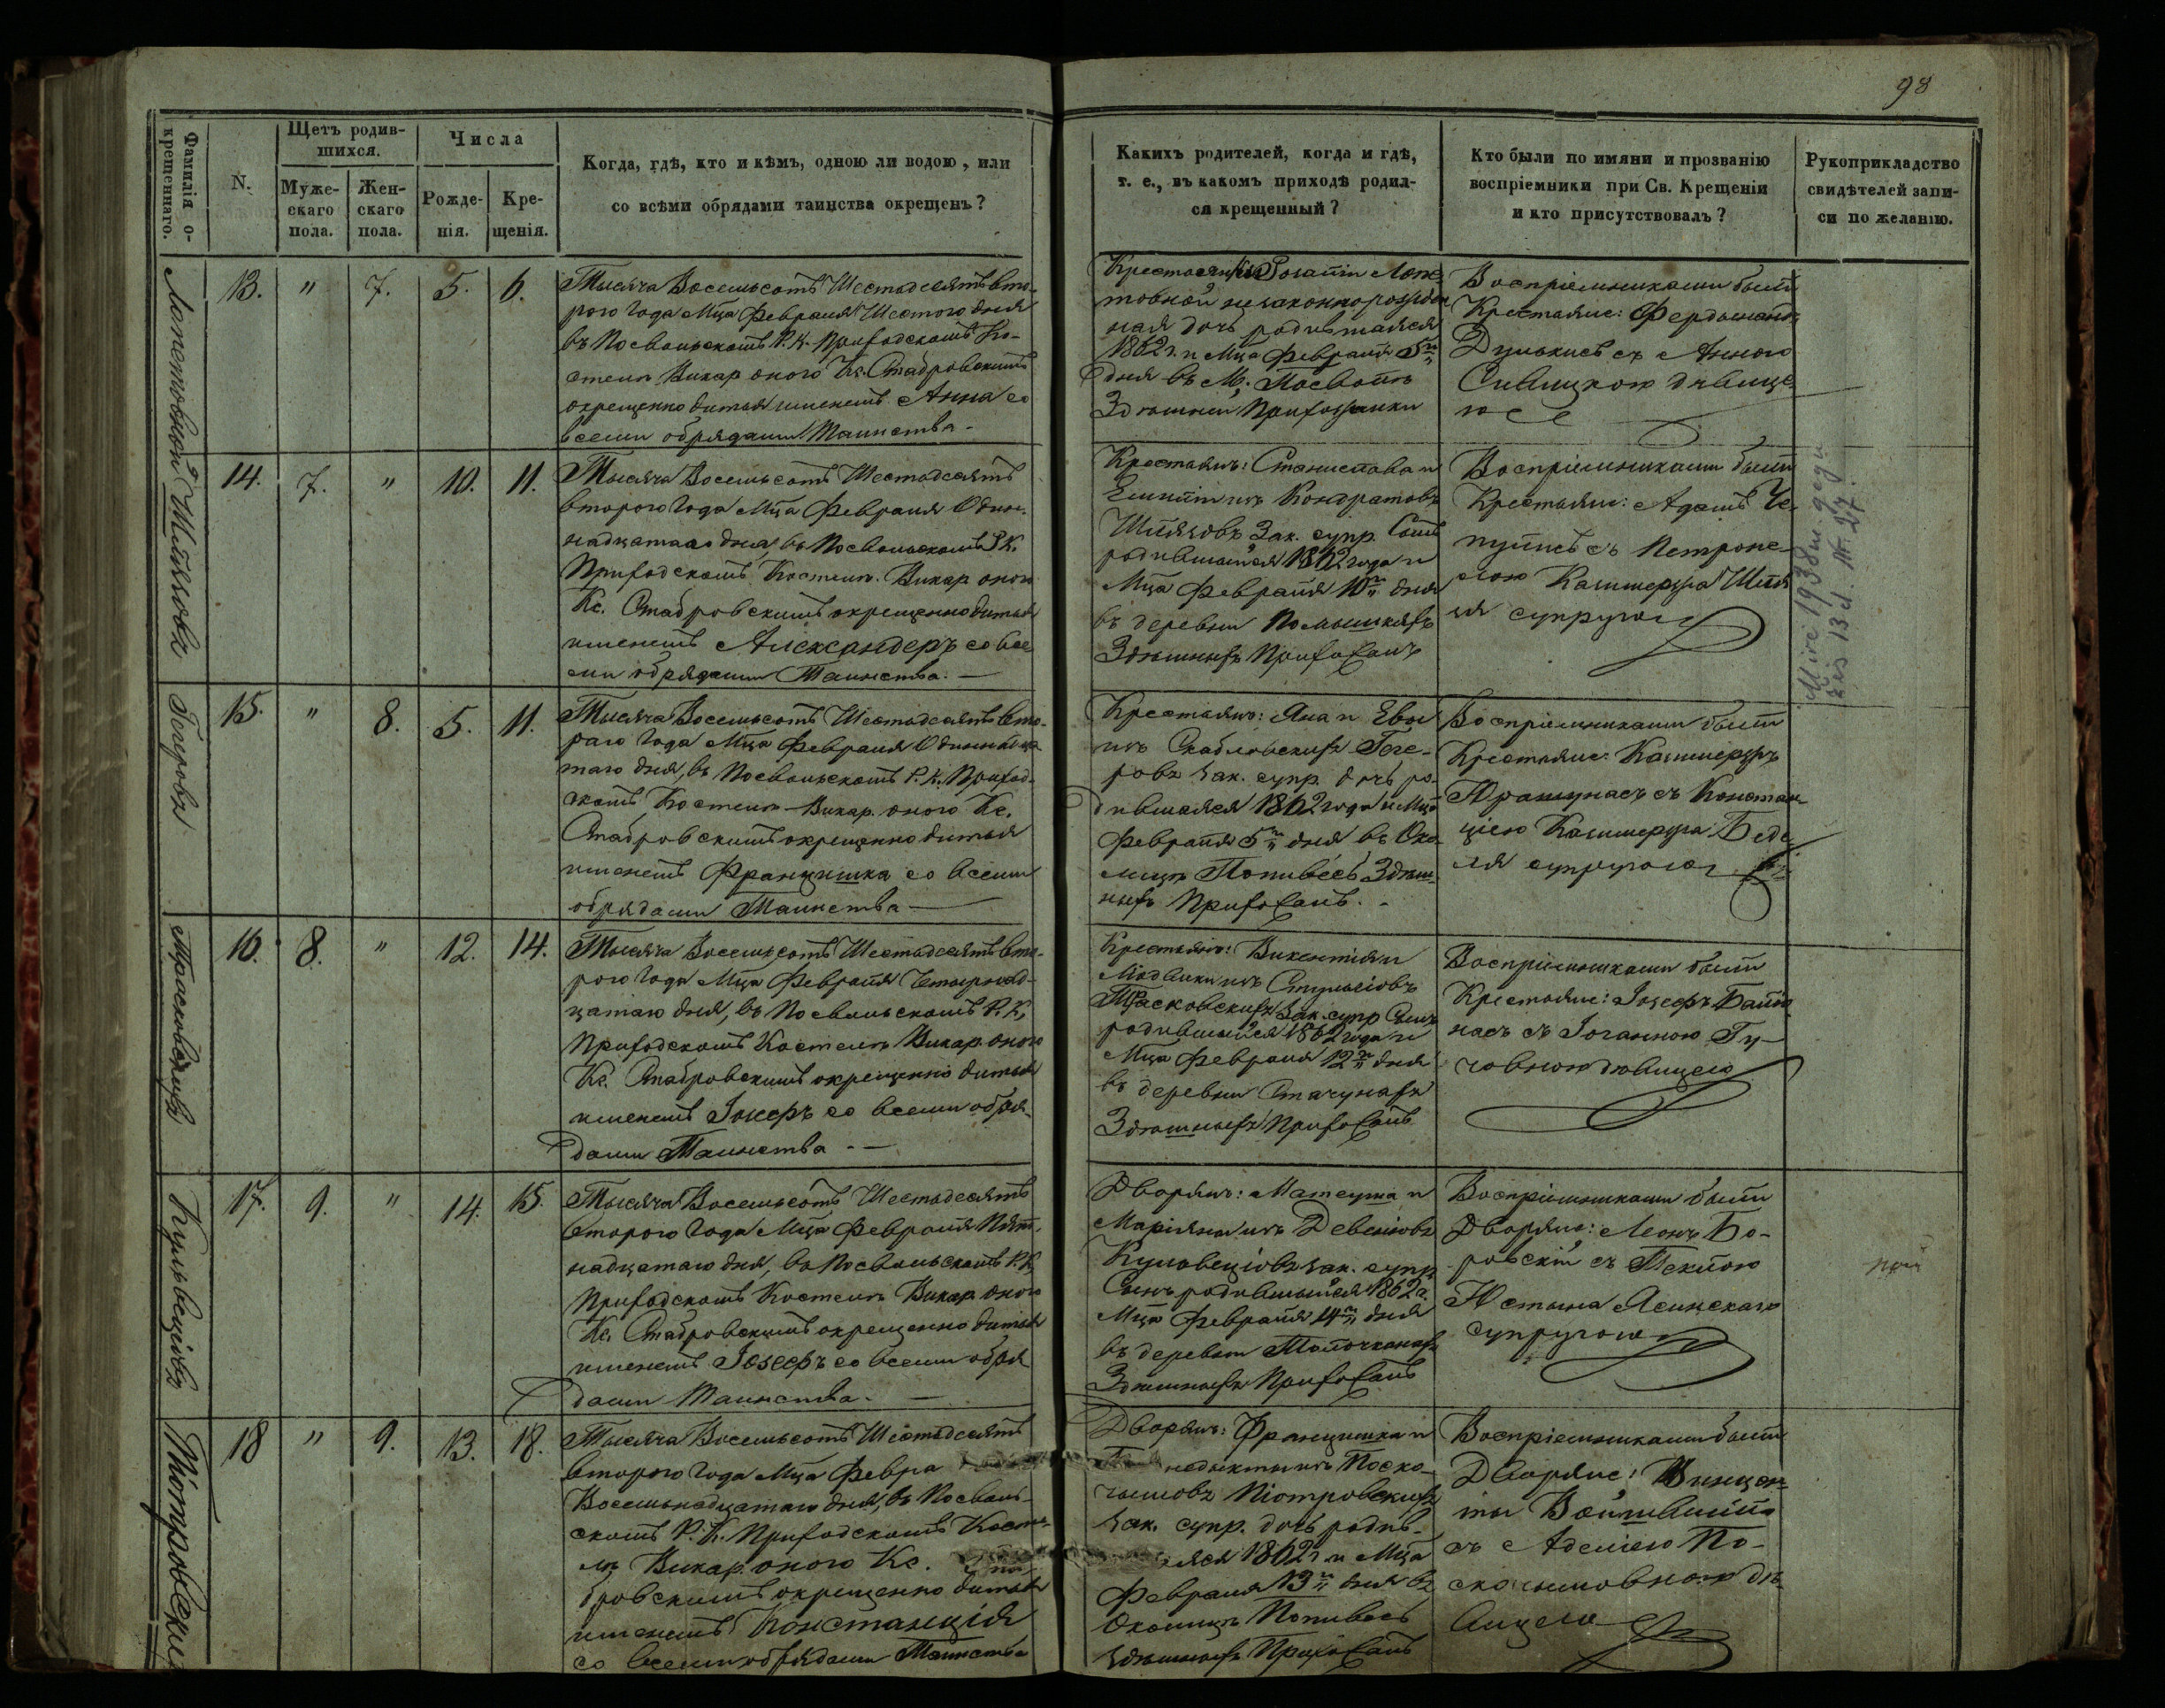 98
Фамилія о-
крещеннаго.
N.
Щетъ родив-
шихся.
Муже-
скаго
пола.
Жен-
скаго
пола.
Числа
Рожде-
нія.
Кре-
щенія.
Когда, гдѣ, кто и кѣмъ, одною ли водою, или
со всѣми обрядами таинства окрещенъ?
Какихъ родителей, когда и гдѣ,
т. е., въ какомъ приходѣ родил-
ся крещенный?
Кто были по имяни и прозванію
воспріемники при Св. Крещеніи
и кто присутствовалъ?
Рукоприкладство
свидѣтелей запи-
си по желанію.
13. " 7. 5. 6.
Тысяча Восемьсотъ Шестьдесятъ вто-
рого Года Мца Февраля Шестого дня
въ Посвольскомъ Р. К. Приходскомъ Ко-
стелѣ Викар. оного Кс. Стабровскимъ
окрещенно дитья именемъ Анна со
всеми обрядами Таинства -
Крестьянки Розаліи
товной незаконнорожден
ная дочь родившаяся
1862 г. и Мца Февраля 5го
дня въ М. Посволѣ
Здѣшней Прихожанки
Воспріемниками были
Крестьяне: Фердинандъ
съ Анною
дѣвице-
ю
14. 7. " 10. 11.
Тысяча Восемьсотъ Шестьдесятъ
второго Года Мца Февраля Один-
надцатаго дня, въ Посвольскомъ Р. К.
Приходскомъ Костелѣ Викар. оного
Кс. Стабровскимъ окрещенно дитья
именемъ Александеръ со все
ми обрядами Таинства. —
Крестьянъ: Станислава и
Емиліи изъ Кондратовъ
Шиляговъ Зак. супр. Сынъ
родившыйся 1862 года и
Мца Февраля 10го дня
въ деревни
Здѣшныхъ Прихожанъ
Воспріемниками были
Крестьяне: Адамъ Че-
съ Петроне-
лею Казимержа
супругою
Mirė 1938 m. gegu
žės 13 d. Nr. 27.
Гегеровъ
15. " 8. 5. 11.
Тысяча Восемьсотъ Шестьдесятъ вто-
раго Года Мца Февраля Одиннадца
таго дня, въ Посвольскомъ Р. К. Приход-
скомъ Костелѣ Викар. оного Кс.
Стабровскимъ окрещенно дитья
именемъ Францишка со всеми
обрядами Таинства —
Крестьянъ: Яна и Евы
изъ Геге-
ровъ зак. супр. дочь ро-
дившаяся 1862 года и Мца
Февраля 5го дня въ Око-
лицѣ Попивесь Здѣш-
ныхъ Прихожанъ. -
Воспріемниками были
Крестьяне: Казимержъ
съ Констан-
ціею Казимержа
супругою
Трасковскихъ
16. 8. " 12. 14.
Тысяча Восемьсотъ Шестьдесятъ вто-
рого Года Мца Февраля Четырнад-
цатаго дня, въ Посвольскомъ Р. К.
Приходскомъ Костелѣ Викар. оного
Кс. Стабровскимъ окрещенно дитья
именемъ Іосефъ со всеми обря-
дами Таинства - —
Крестьянъ: Викентія и
изъ
Трасковскихъ Зак. супр. Сынъ
родившыйся 1862 года и
Мца Февраля 12го дня
въ деревни Стачунахъ
Здѣшныхъ Прихожанъ
Воспріемниками были
Крестьяне: Іозефъ
съ Іоганною Гу-
човною дѣвицею
Кульвеціовъ
17. 9. " 14. 15.
Тысяча Восемьсотъ Шестьдесятъ
второго Года Мца Февраля Пят-
надцатаго дня, въ Посвольскомъ Р. К.
Приходскомъ Костелѣ Викар. оного
Кс. Стабровскимъ окрещенно дитья
именемъ Іозефъ со всеми обря-
дами Таинства. —
Дворянъ: Матеуша и
Маріянны изъ Девеніовъ
Кульвеціовъ зак. супр.
Сынъ родившыйся 1862 г.
Мца Февраля 14го дня
въ деревни
Здѣшныхъ Прихожанъ
Воспріемниками были
Дворяне: Леонъ Бо-
ровскій съ Теклею
Юстына Ясинскаго
супругою
Піотровскихъ
18 " 9. 13. 18.
Тысяча Восемьсотъ Шестьдесятъ
второго Года Мца Февра
Восемьнадцатаго дня, въ Посволь-
скомъ Р. К. Приходскомъ Косте-
лѣ Викар. оного Кс. Ста
бровскимъ окрещенно дитья
именемъ Констанція
со всеми обрядами Таинства
Дворянъ: Францишка и
недыкты изъ Поско-
чымовъ Піотровскихъ
Зак. супр. дочь родив-
аяся 1862 г. и Мца
Февраля 13го дня въ
Околицѣ Попивесь
здѣшныхъ Прихожанъ
Воспріемниками были
Дворяне: Винцен-
ты
съ Аделею По-
скочымовною дѣ-
вицею